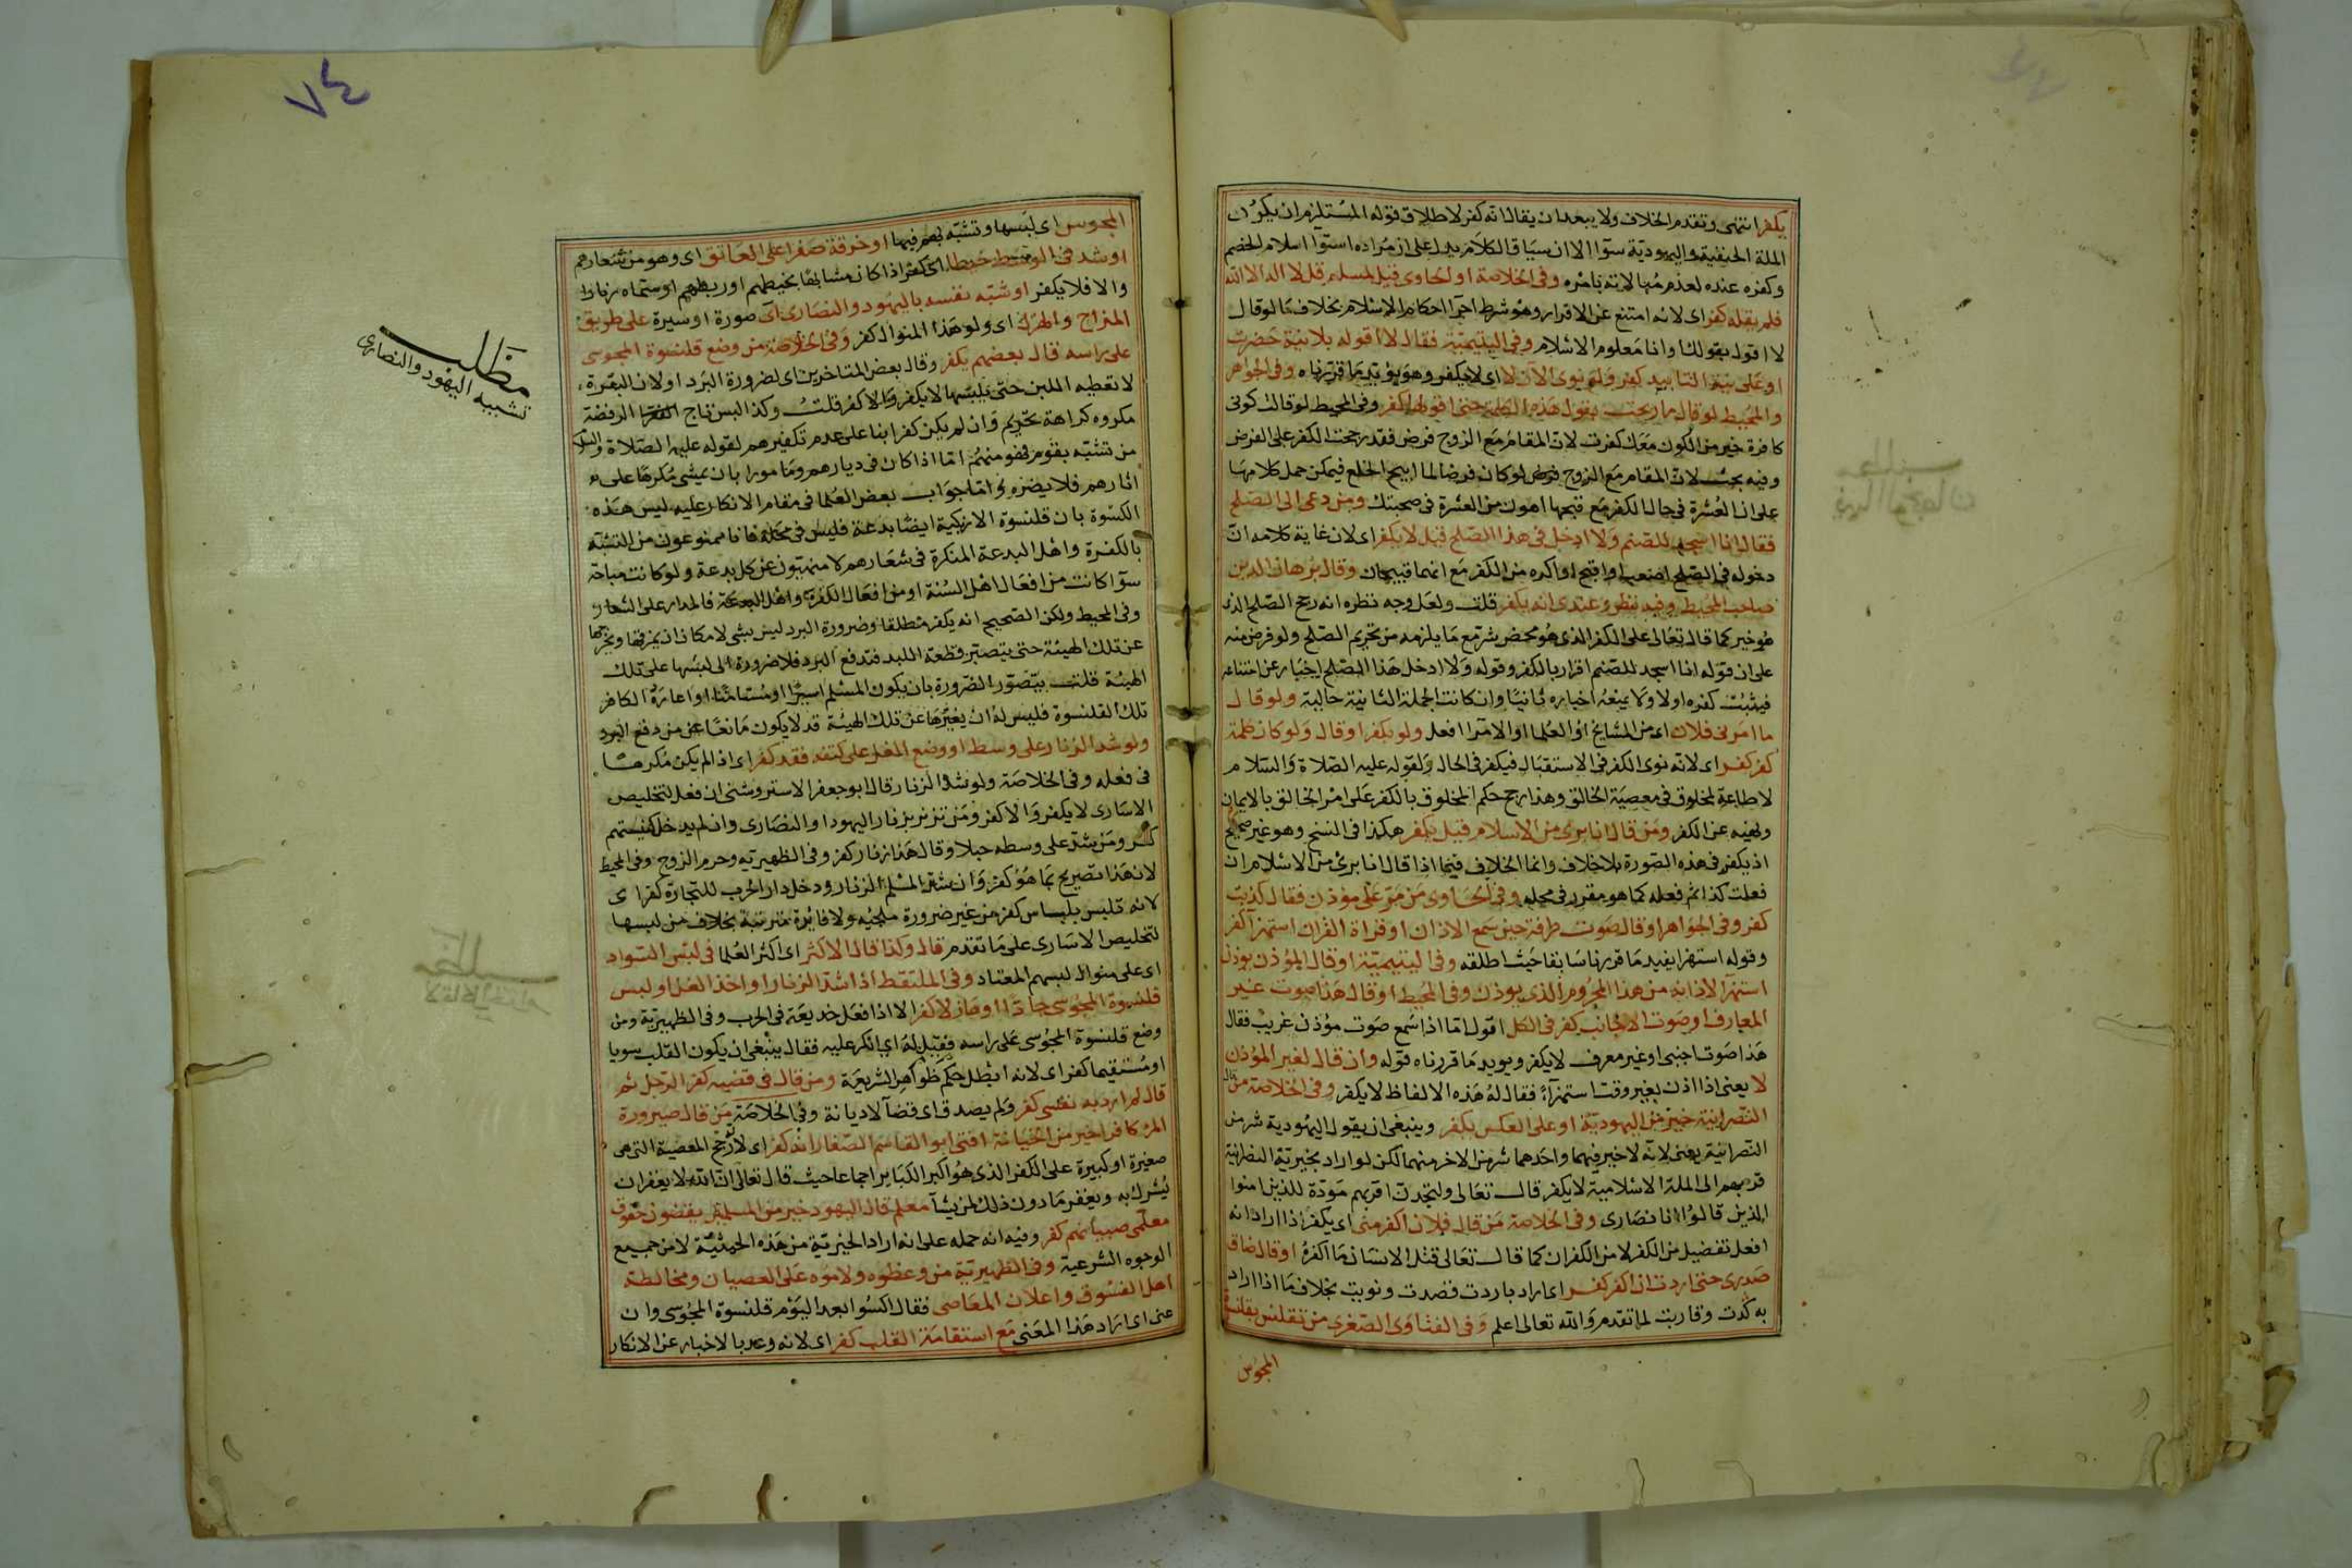 يكفر انتهى وتقدم الخلاف ولا يبعد ان يقال انه كفر لاطلاق قوله المستلزم ان يكون
الملة الحنيفية واليهودية سوآ الا ان سياق الكلام يدل على ان مراده استوآ اسلام الخصم
وكفره عنده لعدم مبالاته بامره وفى الخلاصة او الحاوى قيل لمسلم قل لا اله الا الله
فلم يقله كفر اى لانه امتنع عن الاقرار وهو شرط اجرآ احكام الاسلام بخلاف ما لو قال
لا اقول بقولك وانا معلوم الاسلام وفى اليتيمية فقال لا اقوله بلا نية حضرت
او على نية التابيد كفر ولو نوى الآن لا اى لا يكفر وهو يؤيد ما قررناه وفى الجواهر
والمحيط لو قال ما ربحت بقول هذه الكلمة حتى اقولها كفر وفى المحيط لو قالت كونى
كافرة خير من الكون معك كفرت لان المقام مع الزوج فرض فقد رجحت الكفر على الفرض
وفيه بحث لان المقام مع الزوج فرض لو كان فرضا لما ابيح الخلع فيمكن حمل كلامها
على ان العشرة فى حال الكفر مع قبحها اهون من العشرة فى صحبتك ومن دعى الى الصلح
فقال انا اسجد للصنم ولا ادخل فى هذا الصلح قيل لا يكفر اى لان غاية كلامه ان
دخوله فى الصلح اصعب او اقبح او اكره من الكفر مع انهما قبيحان وقال برهان الدين
صاحب المحيط وفيه نظر وعندى انه يكفر قلت ولعل وجه نظره انه رجح الصلح الذى
هو خير كما قال تعالى على الكفر الذى هو محض شر مع ما يلزمه من تحريم الصلح ولو فرض منه
على ان قوله انا اسجد للصنم اقرار بالكفر وقوله ولا ادخل هذا الصلح اخبار عن امتناعه
فيثبت كفره اولا ولا يمنعه اخباره ثانيا وان كانت الجملة الثانية حالية ولو قال
ما امرنى فلان اى من المشايخ او العلما او الامرآ افعل ولو بكفر او قال ولو كان كلمة
كفر كفر اى لانه نوى الكفر فى الاستقبال فيكفر فى الحال ولقوله عليه الصلاة والسلام
لا طاعة لمخلوق فى معصية الخالق وهذا رجح حكم المخلوق بالكفر على امر الخالق بالايمان
ونهيه عن الكفر ومن قال انا برى من الاسلام قيل يكفر هكذا فى النسخ وهو غير صحيح
اذ يكفر فى هذه الصورة بلا خلاف وانما الخلاف فيما اذا قال انا برئ من الاسلام ان
فعلت كذا ثم فعله كما هو مقرر فى محله وفى الحاوى من مر على مؤذن فقال كذبت
كفر وفى الجواهر او قال صوت طرفة حين سمع الاذان او قراة القران استهزآ كفر
وقوله استهزا يفيد ما قررنا سابقا حيث اطلقه وفى اليتيمية او قال لمؤذن يؤذن
استهزآ لاذانه من هذا المحروم الذى يوذن وفى المحيط او قال هذا صوت غير
المعارف او صوت الاجانب كفر فى الكل اقول اما اذا سمع صوت مؤذن غريب فقال
هذا صوت اجنبى او غير معرف لا يكفر ويويد ما قررناه قوله وان قال لغير المؤذن
لا يعنى اذا اذن بغير وقت استهزآء فقال له هذه الالفاظ لا يكفر وفى الخلاصة من قال
النصرانية خير من اليهودية او على العكس يكفر وينبغى ان يقول اليهودية شر من
النصرانية يعنى لانه لا خير فيهما واحدهما شر من الاخر منهما لكن لو اراد بخيرية النصرانية
قربهم الى الملة الاسلامية لا يكفر قال تعالى ولتجدن اقربهم مودة للذين امنوا
الذين قالوا انا نصارى وفى الخلاصة من قال فلان اكفر منى اى يكفر اذا اراد انه
افعل تفضيل من الكفر لا من الكفران كما قال تعالى قتل الانسان ما اكفره او قال ضاق
صدرى حتى اردت ان اكفر كفر اى اراد باردت قصدت ونويت بخلاف ما اذا اراد
به كدت وقاربت لما تقدم والله تعالى اعلم وفى الفتاوى الصغرى من تقلنس بقلنسوة
المجوس
٧٤
المجوس اى لبسها وتشبه بهم فيها او خرقة صفرا على العاتق اى وهو من شعارهم
او شد فى الوسط خيطا اى كفر اذا كان مشابها بخيطهم او ربطهم او سماه زنارا
والا فلا يكفر او شبه نفسه باليهود والنصارى اى صورة او سيرة على طريق
المزاج والهزل اى ولو هذا المنوال كفر وفى الخلاصة من وضع قلنسوة المجوسى
على راسه قال بعضهم يكفر وقال بعض المتاخرين اى لضرورة البرد او لان البقرة
لا تعطيه اللبن حتى يلبسها لا يكفر والا كفر قلت وكذا لبس تاج الرفضة
مكروه كراهة تحريم وان لم يكن كفرا بنا على عدم تكفيرهم لقوله عليه الصلاة والسلام
من تشبه بقوم فهو منهم اما اذا كان فى ديارهم ومامورا بان يمشى مكرها على
اثارهم فلا يضره واما جواب بعض العلما فى مقام الانكار عليه ليس هذه
الكسوة بان قلنسوة الازبكية ايضا بدعة فليس فى محله فانا ممنوعون من التشبه
بالكفرة واهل البدعة المنكرة فى شعارهم لا منهيون عن كل بدعة ولو كانت مباحة
سوآ كانت من افعال اهل السنة او من افعال الكفرة واهل البدعة فالمدار على الشعار
وفى المحيط ولكن الصحيح انه يكفر مطلقا وضرورة البرد ليس بشى لامكان ان يمزقها ويخرجها
عن تلك الهيئة حتى يتصير قطعة اللبد فتدفع البرد فلا ضرورة الى لبسها على تلك
الهيئة قلت يتصور الضرورة بان يكون المسلم اسيرا او مستامنا او اعاره الكافر
تلك القلنسوة فليس له ان يغيرها عن تلك الهيئة قد لا يكون مانعا عن من دفع البرد
ولو شد الزنار على وسط او وضع المغل على كتفه فقد كفر اى اذا لم يكن مكرها
فى فعله وفى الخلاصة ولو شد الزنار قال ابو جعفر الاستروشنى ان فعل لتخليص
الاسارى لا يكفر والا كفر ومن تزنر بزنار اليهود او النصارى وان لم يدخل كنيستهم
كفر ومن شد على وسطه حبلا وقال هذا زنار كفر وفى الظهيرية وحرم الزوج وفى المحيط
لان هذا تصريح بما هو كفر وان شد المسلم الزنار ودخل دار الحرب للتجارة كفر اى
لانه تلبس بلباس كفر من غير ضرورة ملجيه ولا فائدة مترتبة بخلاف من لبسها
لتخليص الاسارى على ما تقدم قال وكذا قال الاكثر اى اكثر العلما فى لبس السواد
اى على منوال لبسهم المعتاد وفى الملتقط اذا شد الزنار او اخذ الغل او لبس
قلنسوة المجوسى جادا او هازلا كفر الا اذا فعل خديعة فى الحرب وفى الظهيرية ومن
وضع قلنسوة المجوسى على راسه فقيل له اى انكر عليه فقال ينبغى ان يكون القلب سويا
او مستقيما كفر اى لانه ابطل حكم ظواهر الشريعة ومن قال فى قضيه كفر الرجل ثم
قال لم ارد به نفسى كفر ولم يصدق اى قضآ لا ديانة وفى الخلاصة من قال صيرورة
المرء كافرا خير من الخيانة افتى ابو القاسم الصفار انه كفر اى لانه رجح المعصية التى هى
صغيرة او كبيرة على الكفر الذى هو اكبر الكباير اجماعا حيث قال تعالى ان الله لا يغفر ان
يشرك به ويغفر ما دون ذلك لمن يشآ معلم قال اليهود خير من المسلمين يقضون حقوق
معلمى صبيانهم كفر وفيه انه حمله على انه اراد الخيرية من هذه الحيثية لا من جميع
الوجوه الشرعية وفى الظهيرية من وعظوه ولاموه على العصيان ومخالطة
اهل الفسوق واعلان المعاصى فقال اكسوا بعد اليوم قلنسوة المجوسى وان
عنى اى اراد هذا المعنى مع استقامة القلب كفر اى لانه وعد بالاخبار عن الانكار
مطلب
تشبيه اليهود والنصارى